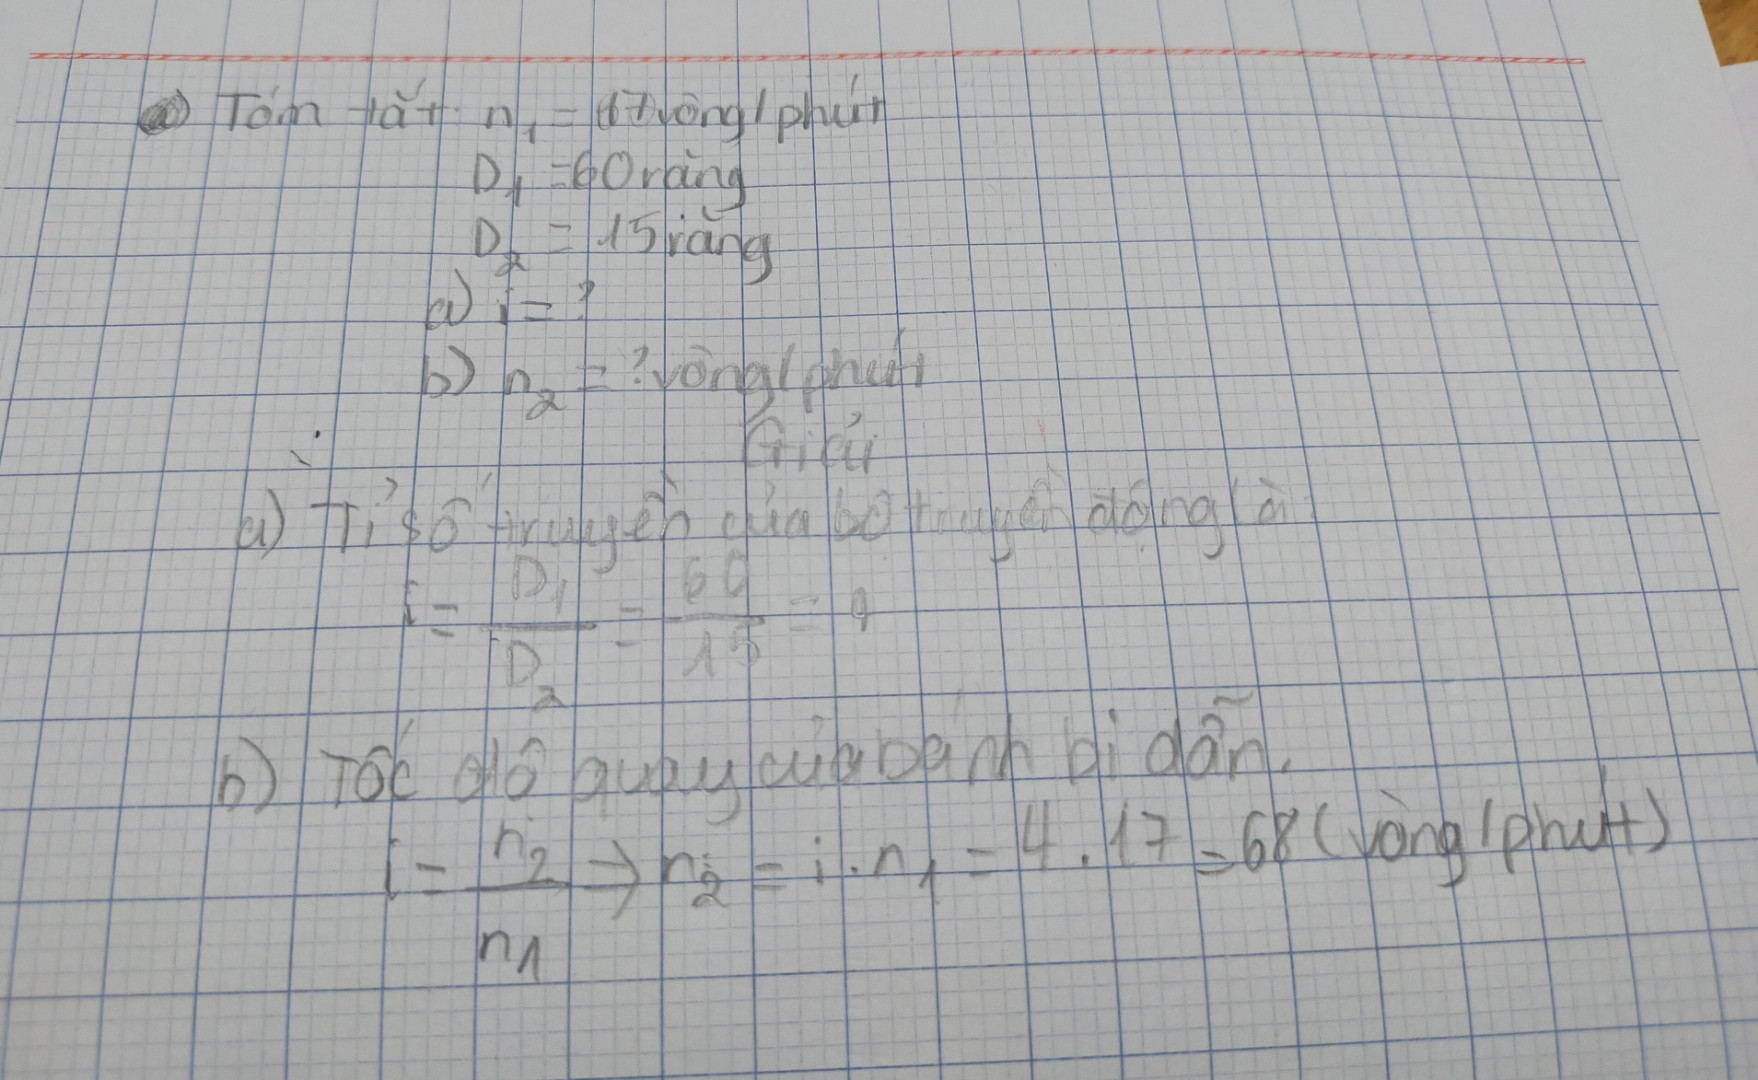 Tóm tắt: n₁ = 17 vòng/phút
D₁ = 60 răng
D₂ = 15 răng
a) i = ?
b) n₂ = ? vòng/phút
Giải
a) Tỉ số truyền của bộ truyền động là:
i = D₁/D₂ = 60/15 = 4
b) Tốc độ quay của bánh bị dẫn.
i = n₂/n₁ → n₂ = i . n₁ = 4 . 17 = 68 (vòng/phút)